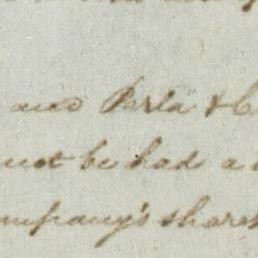 and Perla & C
not be had a
ompany's shares